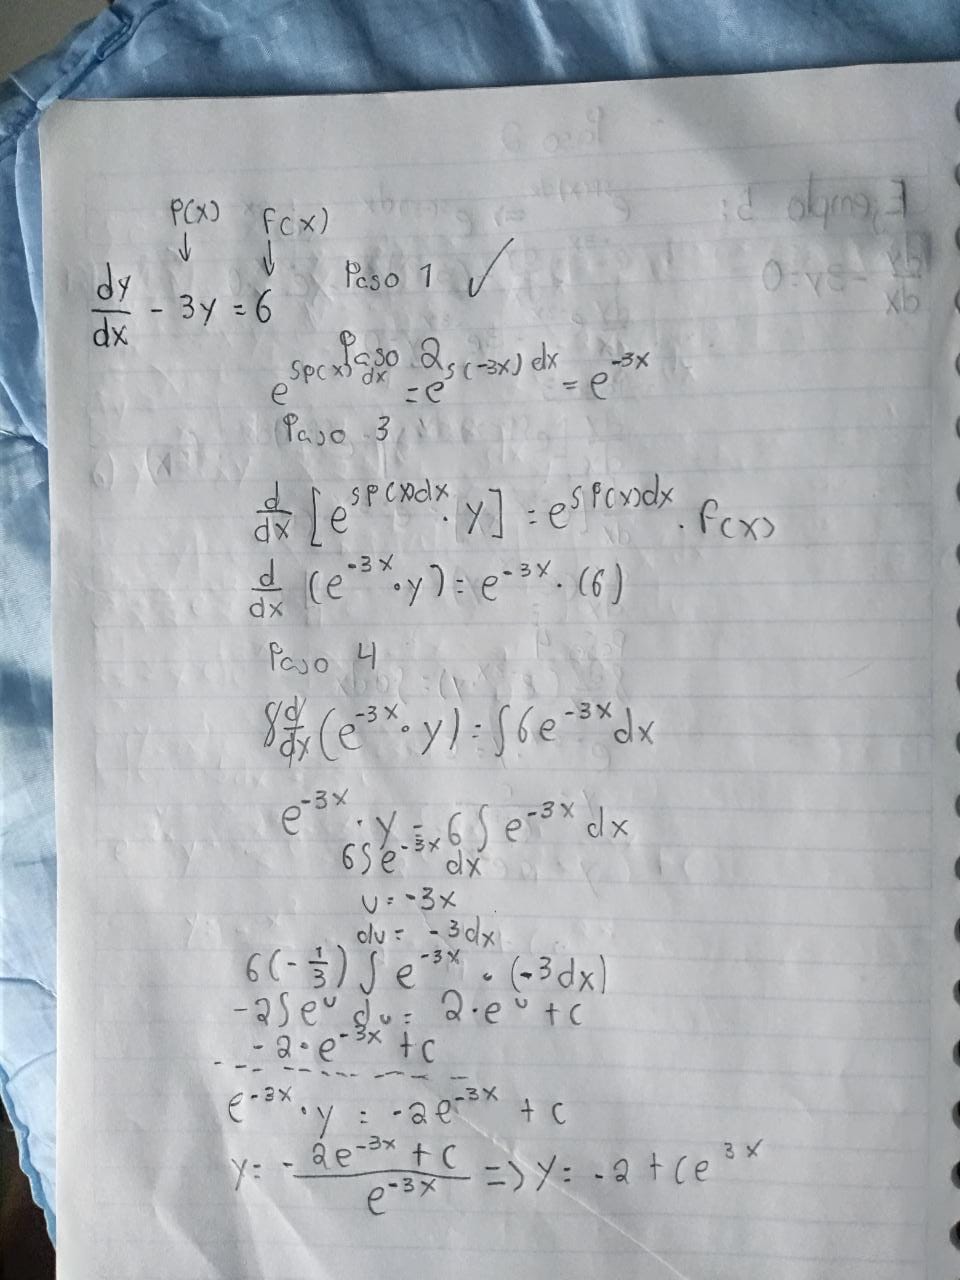 P(x) f(x)
dy/dx - 3y = 6 Paso 1 ✓
Paso 2
e^∫P(x)dx = e^∫(-3x)dx = e^-3x
Paso 3
d/dx [e^∫P(x)dx · y] = e^∫P(x)dx · f(x)
d/dx (e^-3x · y) = e^-3x · (6)
Paso 4
∫d/dx (e^-3x · y) = ∫6e^-3x dx
e^-3x · y = 6∫e^-3x dx
6∫e^-3x dx
u = -3x
du = -3dx
6(-1/3)∫e^-3x · (-3dx)
-2∫e^u du = 2·e^u + c
-2·e^-3x + c
e^-3x · y = -2e^-3x + c
y = - 2e^-3x + c / e^-3x => y = -2 + ce^3x